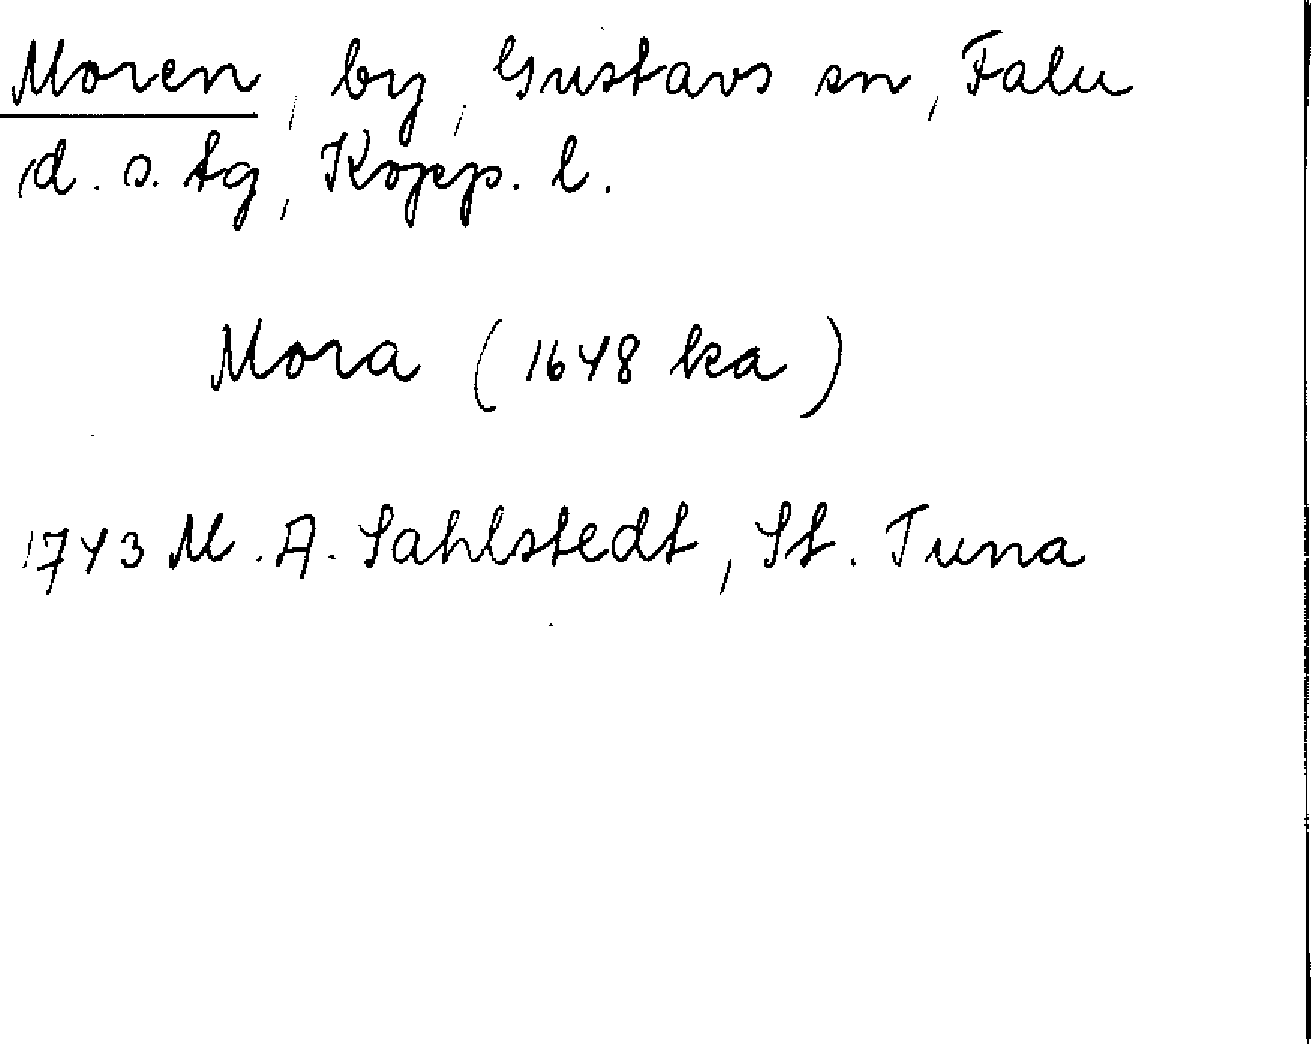 Moren, by, Gustavs sn, Falu
d. s. tg, Kopp. l.
Mora (1648 ka)
1743 M. A. Sahlstedt, St. Tuna